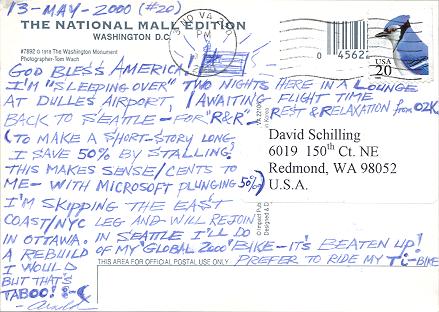 13-MAY-2000 (#20)
THE NATIONAL MALL EDITION
WASHINGTON D.C.
#7892 © 1918 The Washington Monument
Photographer-Tom Wach
PM
04562
USA
20
GOD BLESS AMERICA!
I'M "SLEEPING OVER" TWO NIGHTS HERE IN A LOUNGE
AT DULLES AIRPORT, AWAITING FLIGHT TIME
BACK TO SEATTLE - FOR "R&R" - REST & RELAXATION from O2K.
(TO MAKE A SHORT-STORY LONG
I SAVE 50% BY STALLING!
THIS MAKES SENSE/CENTS TO
ME - WITH MICROSOFT PLUNGING 50%)
I'M SKIPPING THE EA$T
COAST/NYC LEG AND WILL REJOIN
IN OTTAWA. IN SEATTLE I'LL DO
A REBUILD OF MY 'GLOBAL 2000' BIKE - IT'S BEATEN UP!
I WOULD PREFER TO RIDE MY Ti-BIKE
BUT THAT'S
TABOO! :-(
David Schilling
6019 150th Ct. NE
Redmond, WA 98052
U.S.A.
THIS AREA FOR OFFICIAL POSTAL USE ONLY